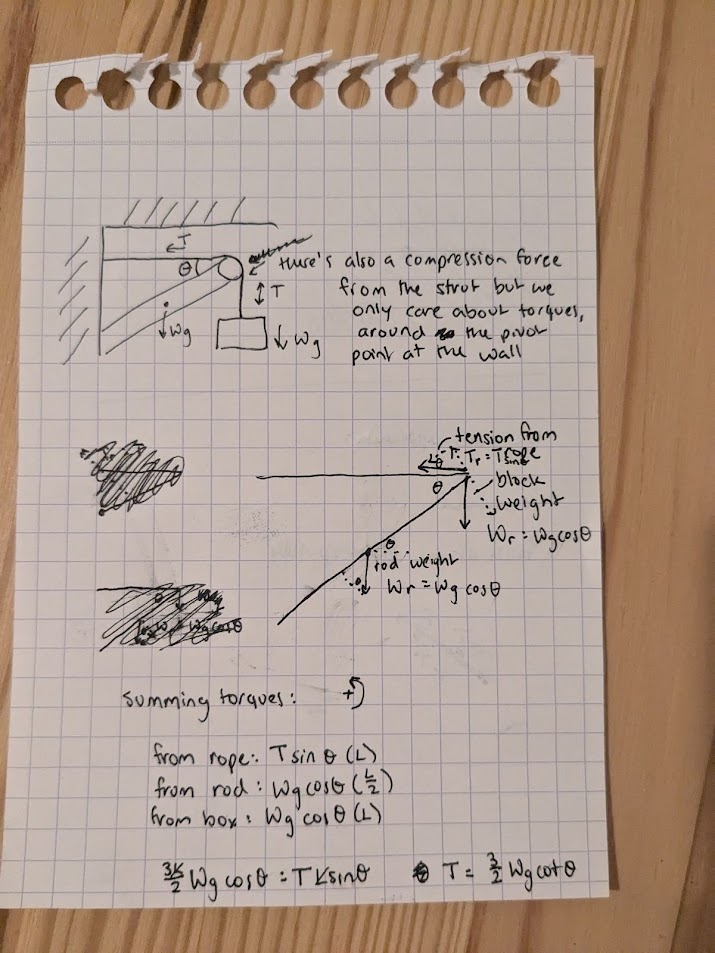 T
θ
there's also a compression force
T
from the strut but we
only care about torques,
Wg
Wg
around the pivot
point at the wall
tension from
rope
θ
Tr = Tsinθ
θ
block
weight
Wr = Wgcosθ
θ
rod weight
θ
Wr = Wg cosθ
summing torques: +
from rope: T sin θ (L)
from rod: Wg cosθ (L/2)
from box: Wg cosθ (L)
3L/2 Wg cosθ = TLsinθ T = 3/2 Wg cotθ